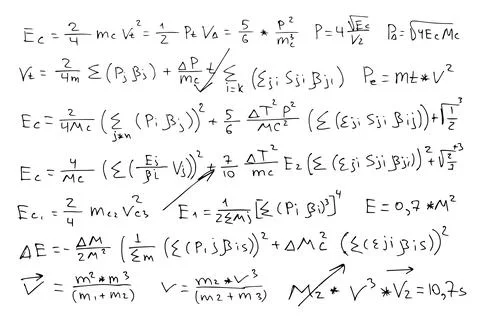 Ec = 2/4 mc Vt² = 1/2 Pt VΔ = 5/6 * P²/mc² P = 4 √Ec/V2 PΔ = √4EcMc
Vt = 2/4m Σ(Pj βj) + ΔP/mc t Σ i=k (Σji Sji βji) Pe = mt * V²
Ec = 2/4Mc (Σ j*n (Pi βj))² + 5/6 ΔT² P²/MC² (Σ(Σji Sji βij)) + √1/2³
Ec = 4/Mc (Σ(-Ej/βi Vj))² + 7/10 ΔT²/mc E2 (Σ(Σji Sji βji))² + √2/3 +3
Ec1 = 2/4 mc2 Vc3² E1 = 1/2ΣMj [Σ(Pi βi)³]⁴ E = 0,7 * M²
ΔE = - ΔM/2M² (1/Σm (Σ(Pij βis))² + ΔMc² (Σ(Eji βis))²
V = m² * m³/(m1 + m2) V = m2 * V³/(m2 + m3) M2 * V³ * V2 = 10,7s